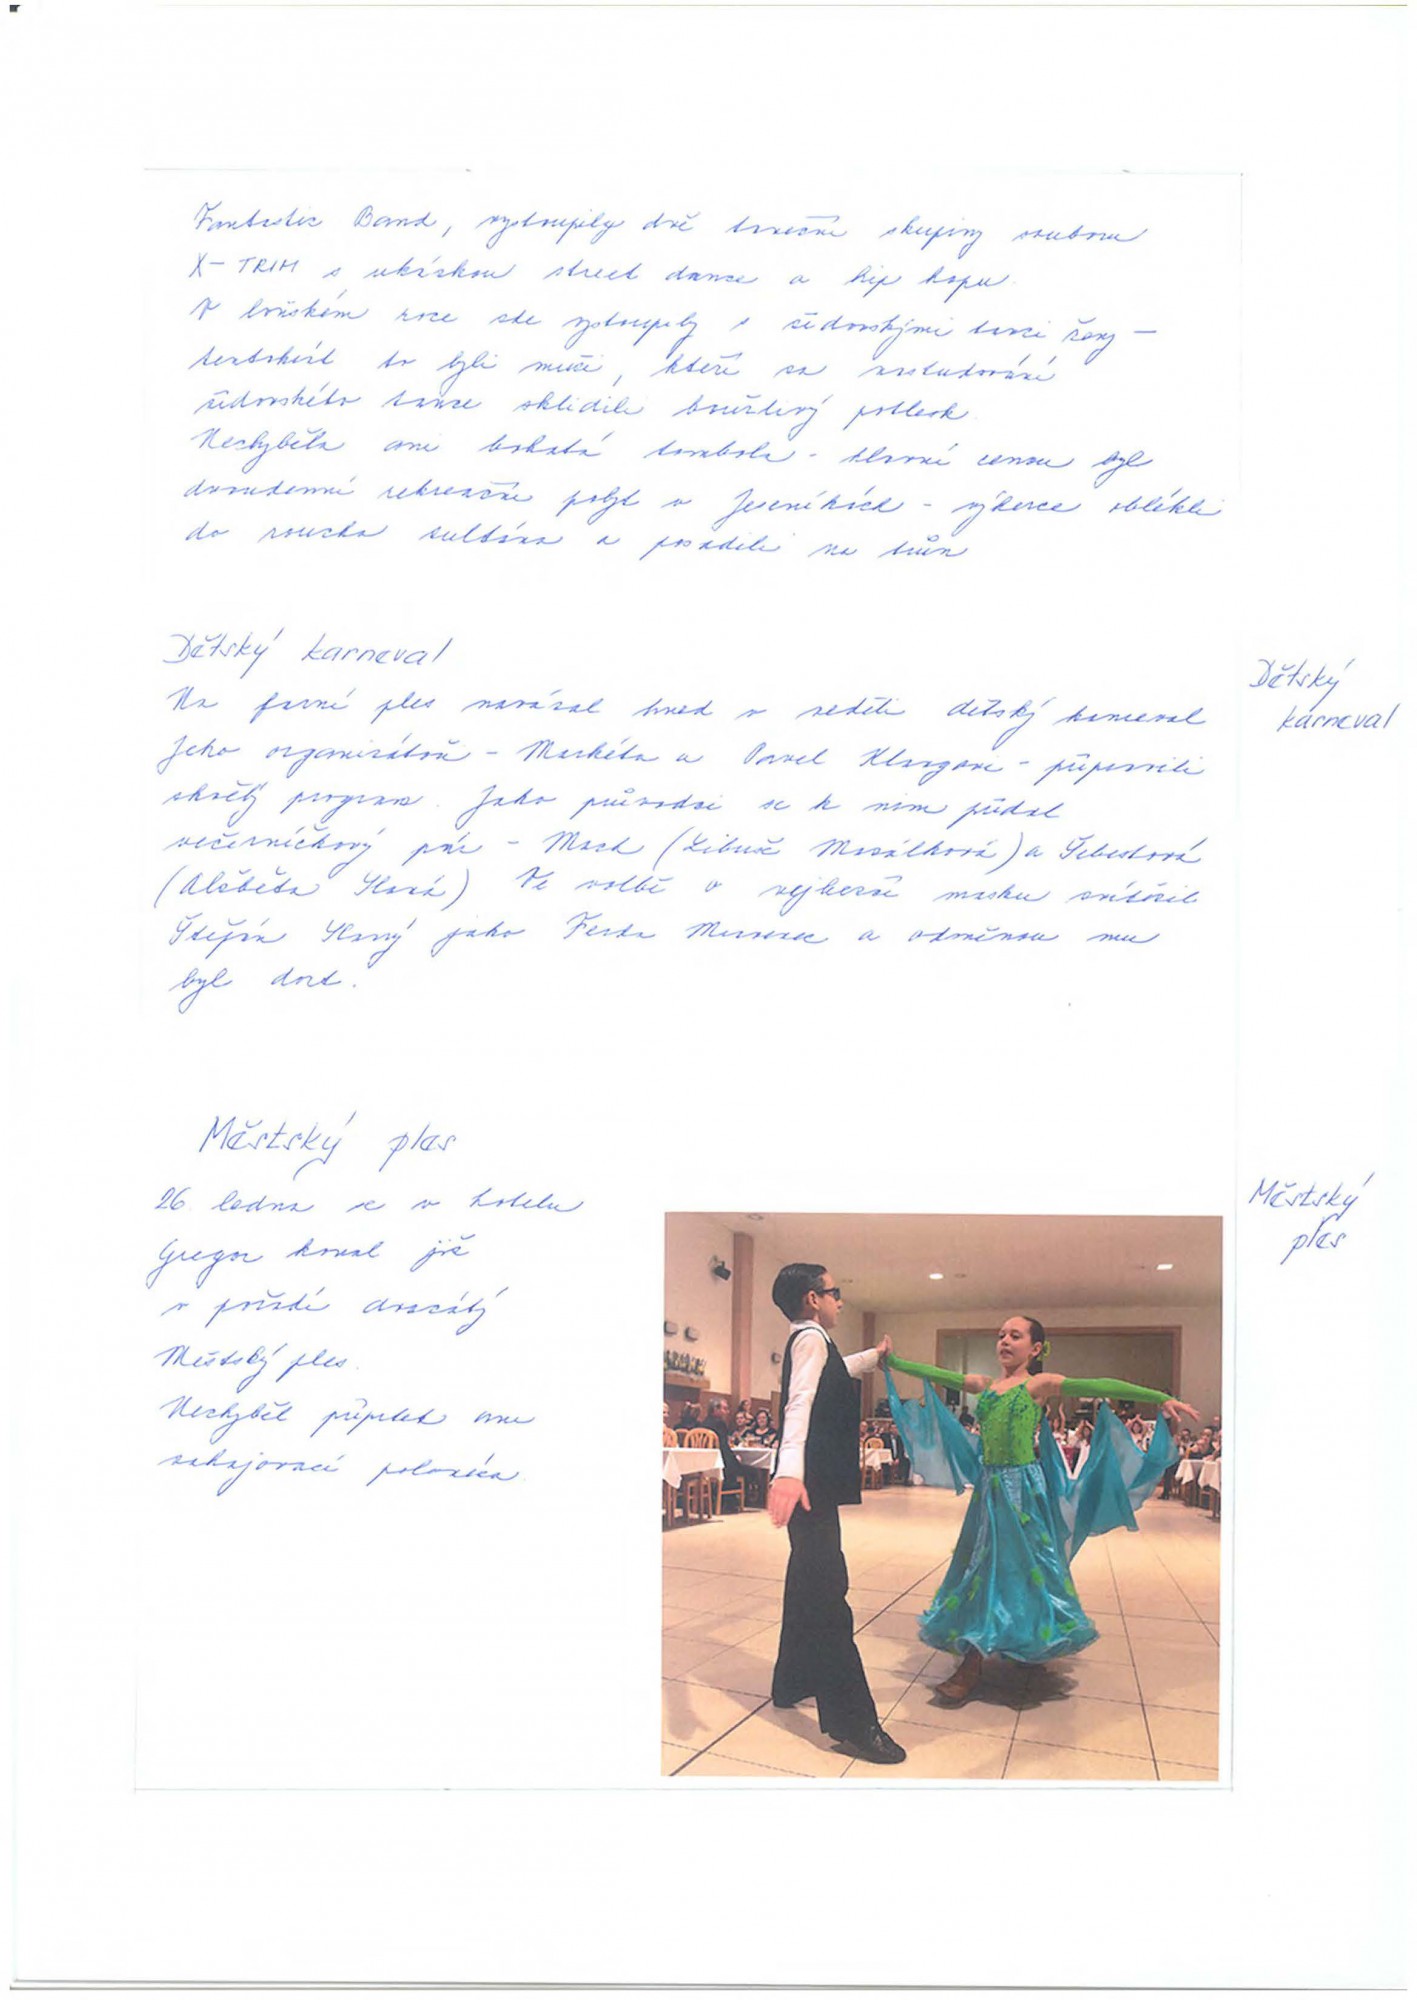 Fantastic Band, vystoupily dvě taneční skupiny souboru
X-TRIM s ukázkou street dance a hip hopu.
V loňském roce zde vystoupily s židovskými tanci ženy -
tentokrát to byli muži, kteří za nastudování
židovského tance sklidili bouřlivý potlesk.
Nechyběla ani bohatá tombola - hlavní cenou byl
dvoudenní rekreační pobyt v Jeseníkách - výherce oblékli
do roucha sultána a posadili na trůn
Dětský karneval
Na farní ples navázal hned v neděli dětský karneval
Jeho organizátoři - Markéta a Pavel - připravili
skvělý program. Jako průvodci se k nim přidal
večerníčkový pár - Mach (Libuše) a Šebestová
(Alžběta Slaná) Ve volbě o nejhezčí masku zvítězil
Štěpán Slaný jako Ferda Mravenec a odměnou mu
byl dort.
Dětský
karneval
Městský ples
26. ledna se v hotelu
Gregor konal již
v pořadí dvacátý
Městský ples.
Nechyběl přípitek ani
zahajovací polonéza.
Městský
ples